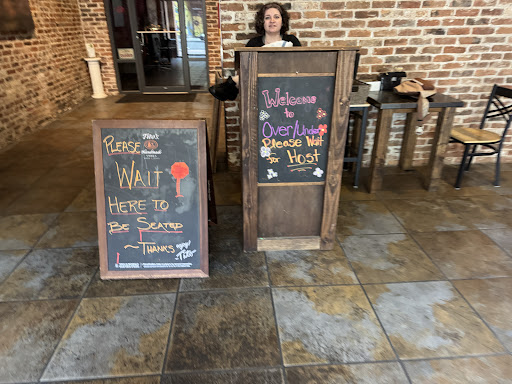 Tito's
Handmade
VODKA
PLEASE
WAIT
HERE TO
BE SEATED
~THANKS
Welcome
to
Over/Under
Please Wait
for Host